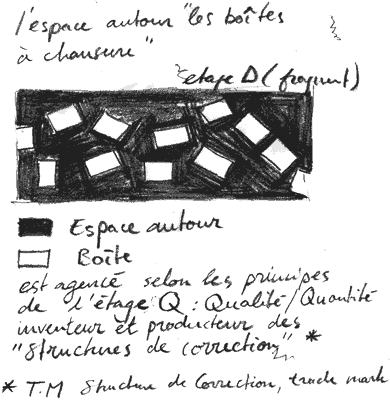 l'espace autour "les boîtes
à chaussure"
étage D (fragment)
Espace autour
Boîte
est agencé selon les principes
de l'étage Q : Qualité/Quantité
inventeur et producteur des
"Structures de correction" *
* T.M Structure de Correction, trade mark